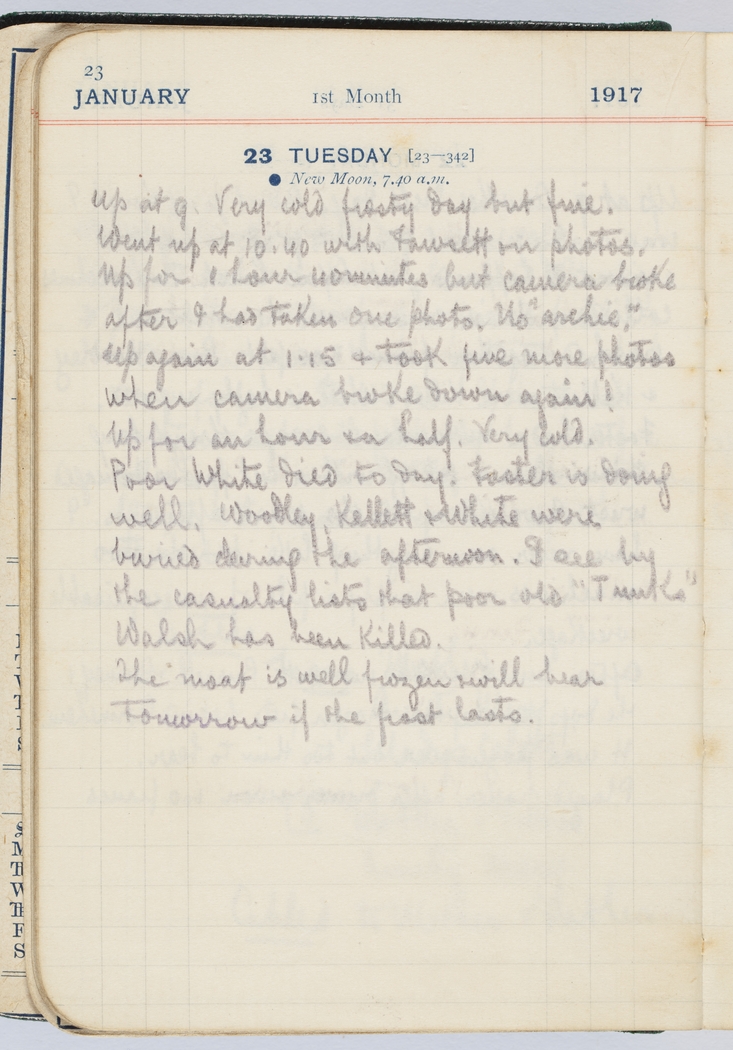 23
JANUARY 1st Month 1917
23 TUESDAY [23—342]
● New Moon, 7.40 a.m.
Up at 9. Very cold frosty day but fine.
Went up at 10.40 with Fawcett on photos.
Up for 1 hour 40 minutes but camera broke
after I had taken one photo. No "archie".
Up again at 1.15 & took five more photos
when camera broke down again!
Up for an hour & a half. Very cold.
Poor White died to day. Foster is doing
well. Woodley, Kellett & White were
buried during the afternoon. I see by
the casualty lists that poor old
Walsh has been killed.
The moat is well frozen & will bear
tomorrow if the frost lasts.
S
M
Th
W
Th
F
S